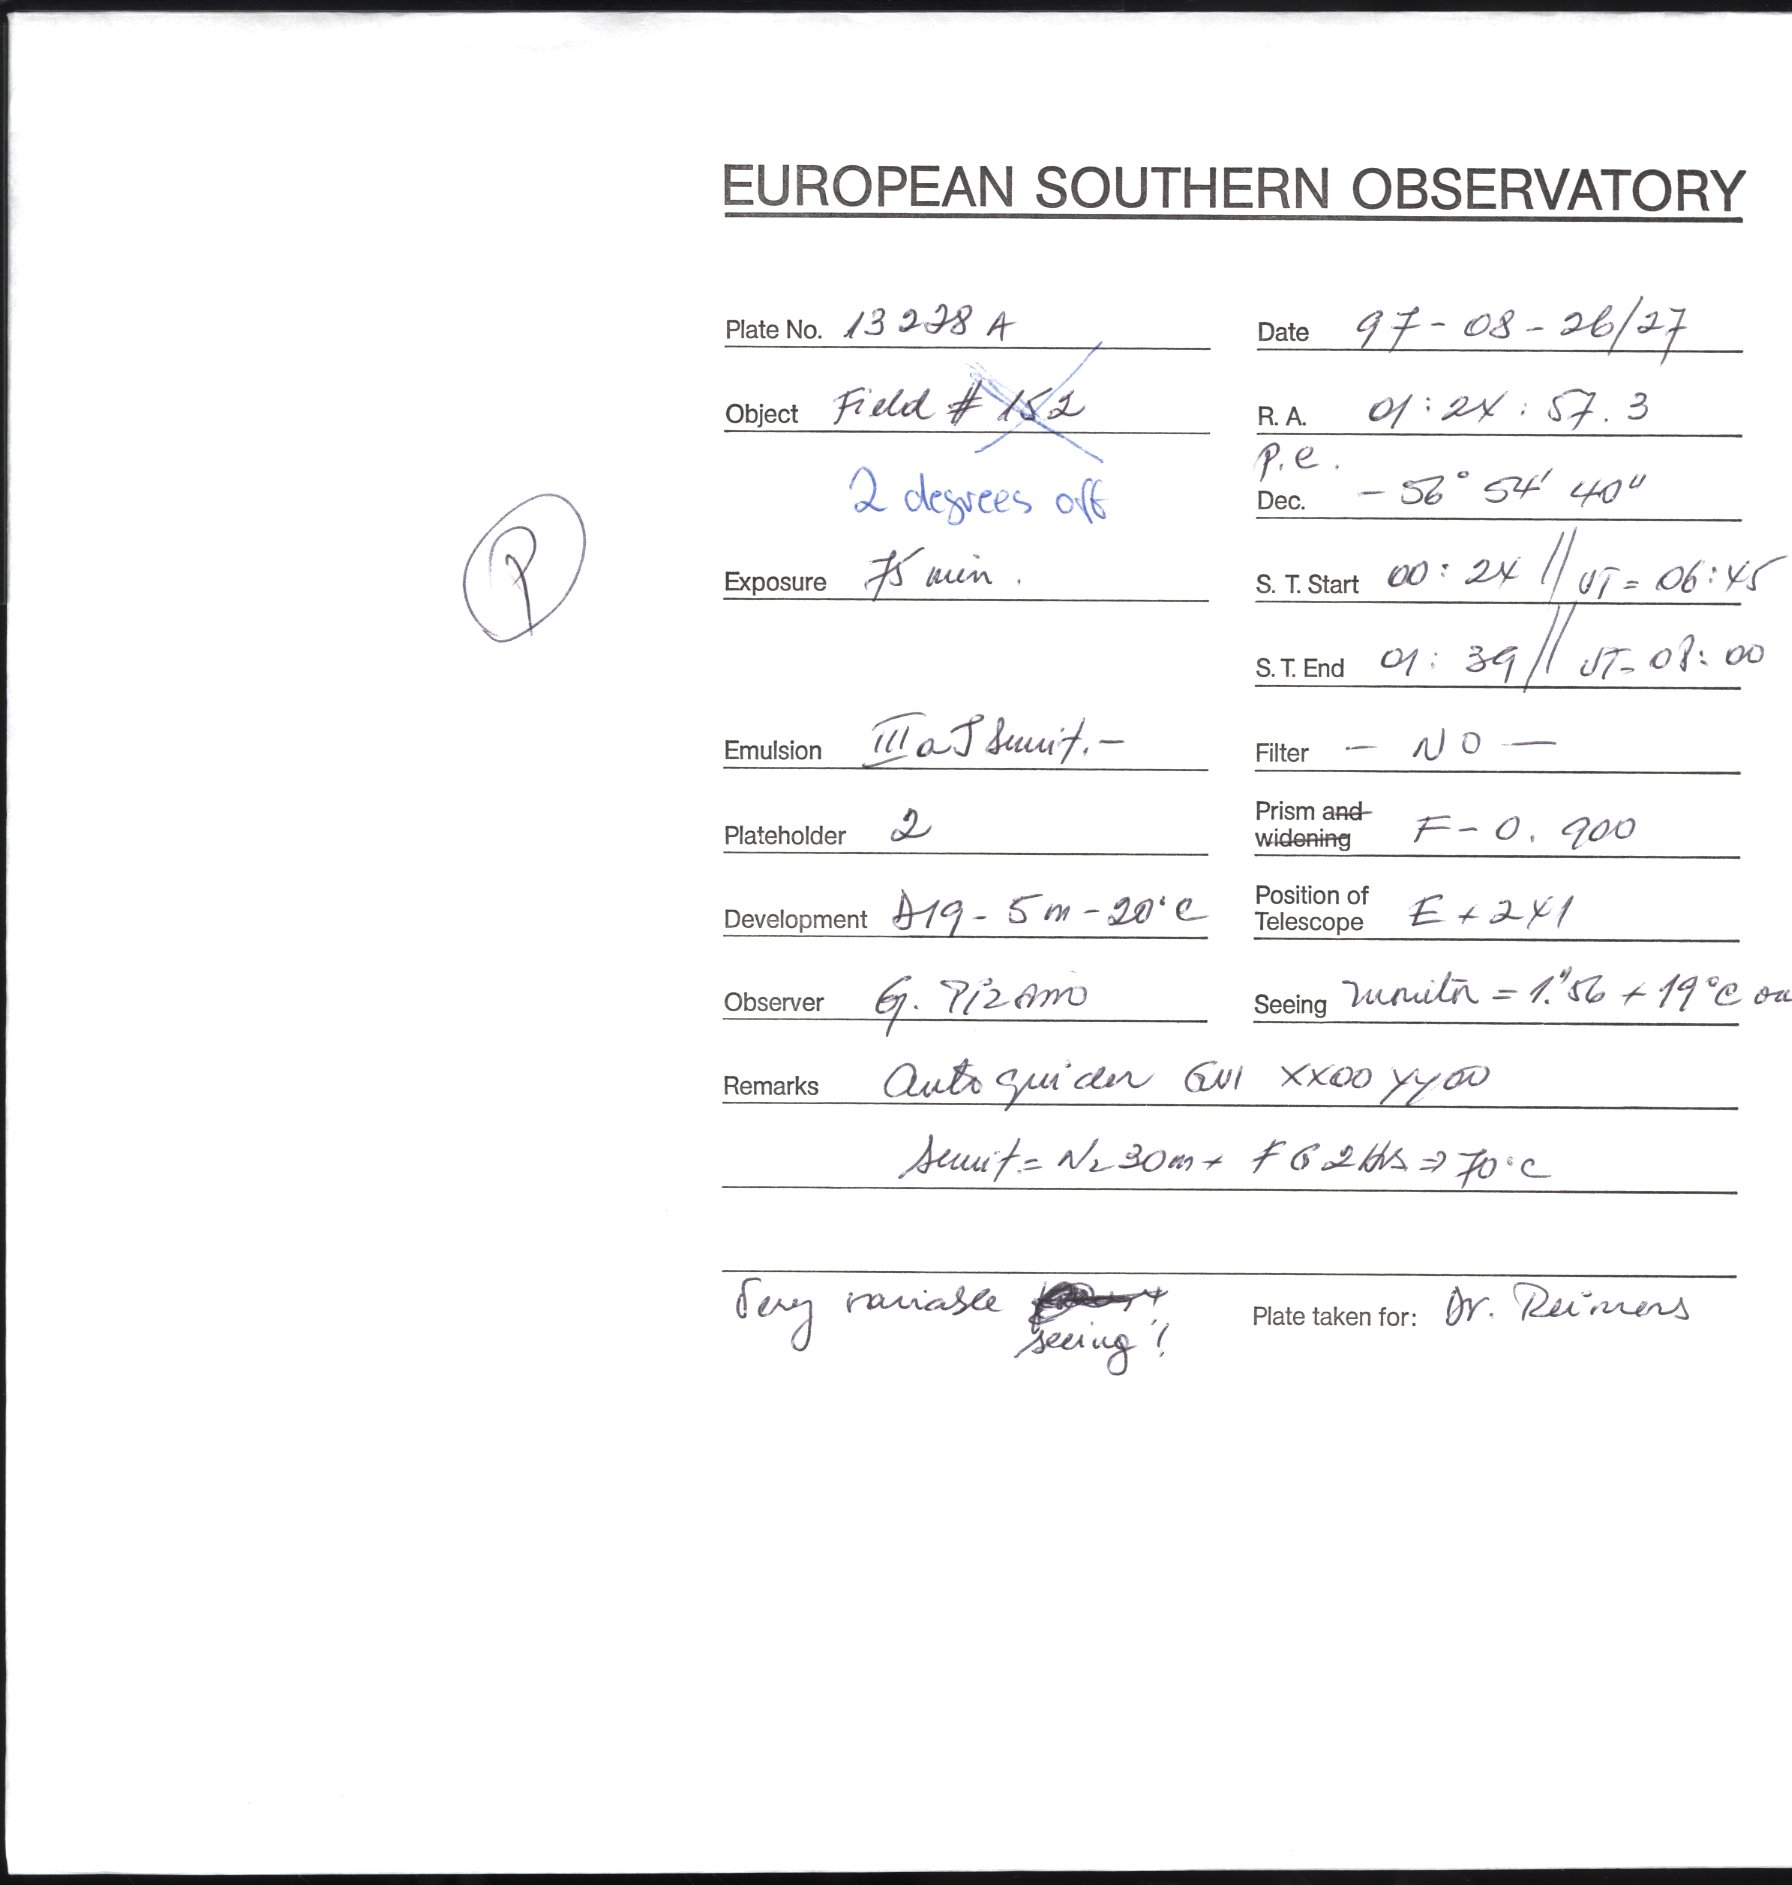 EUROPEAN SOUTHERN OBSERVATORY
Plate No. 13228 A
Date 97-08-26/27
Object Field # 152
R. A. 01:24:57.3
2 degrees off
p.e.
Dec. -56° 54' 40"
P
Exposure 75 min.
S. T. Start 00:24 // UT = 06:45
S. T. End 01:39 // UT= 08:00
Emulsion III a J Sensit. -
Filter - NO -
Plateholder 2
Prism and widening F-0.900
Development D19 - 5m - 20°C
Position of Telescope E + 241
Observer G. Pizarro
Seeing monitor = 1."56 + 19°C
Remarks Autoguider GVI XX00 YY00
Sensit = N2 30m + FG 2Hrs => 70°C
Very variable
seeing!
Plate taken for: Dr. Reimers